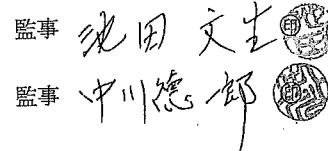 監事 池田 文生 ㊞
監事 中川 德一郎 ㊞